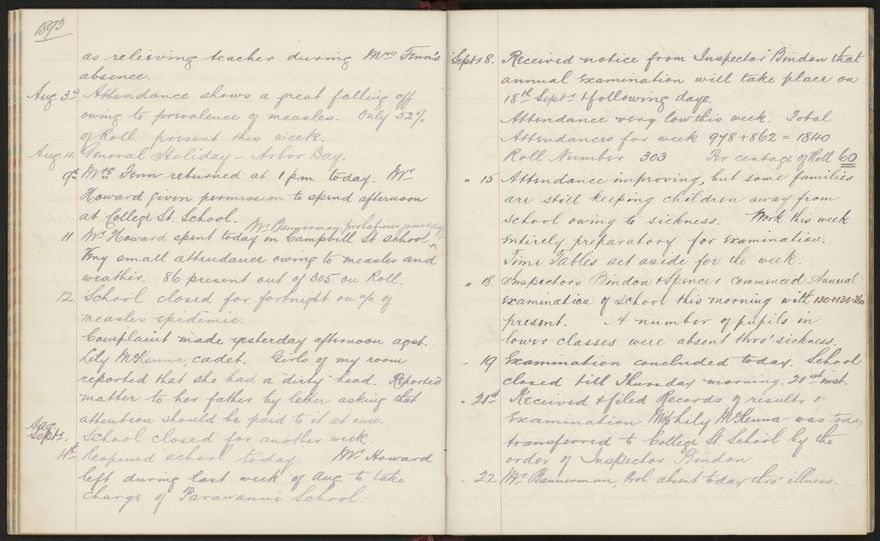 1893
as relieving teacher during Mrs Fenn's
absence.
Aug. 3rd Attendance shows a great falling off
owing to prevalence of measles. Only 52%
of Roll present this week.
Aug 11. General Holiday - Arbor Day.
9th Mrs Fenn returned at 1 p.m. today. Mr
Howard given permission to spend afternoon
at College St. School.
Mr Bannerman, probationer joined
11 Mr Howard spent today in Campbell St School ^
Very small attendance owing to measles and
weather. 86 present out of 305 on Roll.
12. School closed for fortnight on a/c of
measles epidemic.
Complaint made yesterday afternoon agst.
Lily McKenna, cadet. Girls of my room
reported that she had a 'dirty' head. Reported
matter to her father by letter asking that
attention should be paid to it at once.
Aug
Sept 1. School closed for another week.
4th Reopened school today. Mr Howard
left during last week of Aug to take
charge of Parawanui School.
Sept 8. Received notice from Inspector Bindon that
annual examination will take place on
18th Sept. & following days.
Attendance very low this week. Total
Attendances for week 978 + 862 = 1840
Roll Number 303 Percentage of Roll 60
" 15 Attendance improving, but some families
are still keeping children away from
school owing to sickness. Work this week
entirely preparatory for examination.
Time Tables set aside for the week.
" 18. Inspectors Bindon & Spencer commenced Annual
examination of school this morning with 130+130=260
present. A number of pupils in
lower classes were absent thro' sickness.
" 19 Examination concluded today. School
closed till Thursday morning. 21st inst.
" 21st Received & filed Records of results of
Examination. Miss Lily McKenna was today
transferred to College St School by the
order of Inspector Bindon.
" 22 Mr Bannerman Prob. absent today thro' illness.